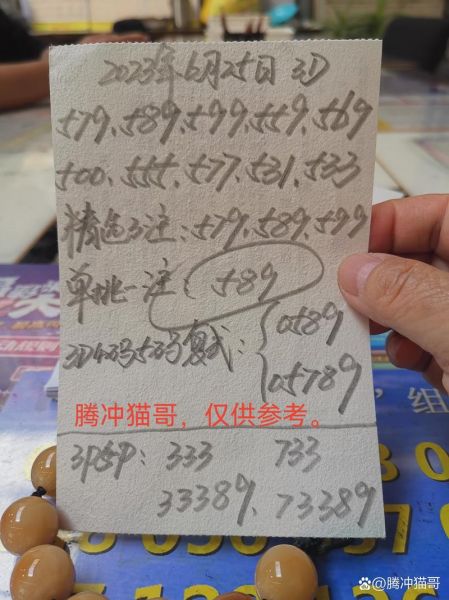 2023年6月25日 3D
579、589、599、559、569
500、555、577、531、533
精选3注:579、589、599
单挑一注:589
3D4码5码复式:{0589
05789
腾冲猫哥,仅供参考。
3P5P:333 733
33389、73389
组
腾冲猫哥